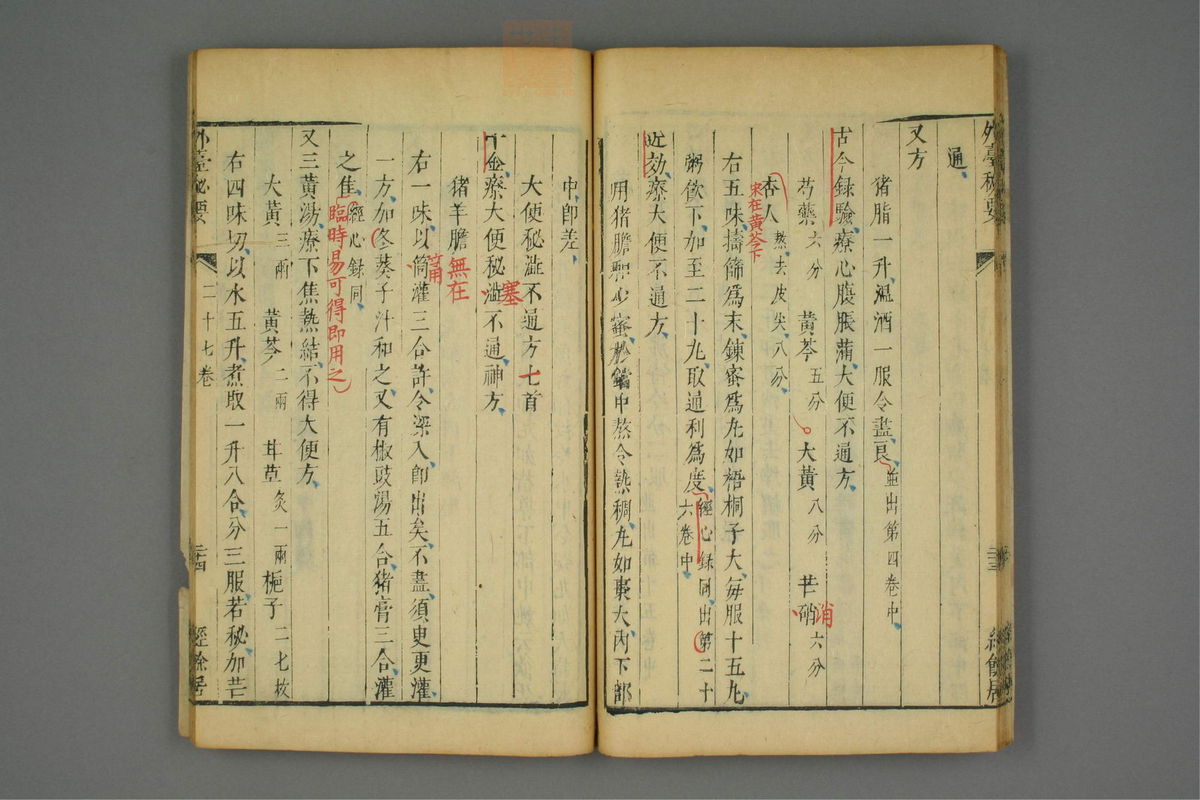 外臺秘要
通
又方
猪脂一升温酒一服令盡良並出第四卷中
古今録驗療心腹脹滿大便不通方
芍藥六分 黃芩五分 大黃八分 芒硝六分
消
杏人熬去皮尖八分
宋在黃芩下
右五味擣篩爲末鍊蜜爲丸如梧桐子大毎服十五丸
粥飲下加至二十丸取通利爲度經心録同出第二十六卷中
近効療大便不通方
用猪膽和少蜜於鐺中熬令熱稠丸如棗大内下部
中即差
大便秘澁不通方七首
塞
千金療大便秘澁不通神方
猪羊膽
無在
右一味以筒灌三合許令深入即出矣不盡須臾更灌
一方加冬葵子汁和之又有椒豉湯五合猪膏三合灌
之佳經心録同
臨時易可得即用之
又三黃湯療下焦熱結不得大便方
大黃三兩 黃芩二兩 甘草炙一兩 梔子二七枚
右四味切以水五升煮取一升八合分三服若秘加芒
外臺秘要 二十七卷 二十四 經餘居